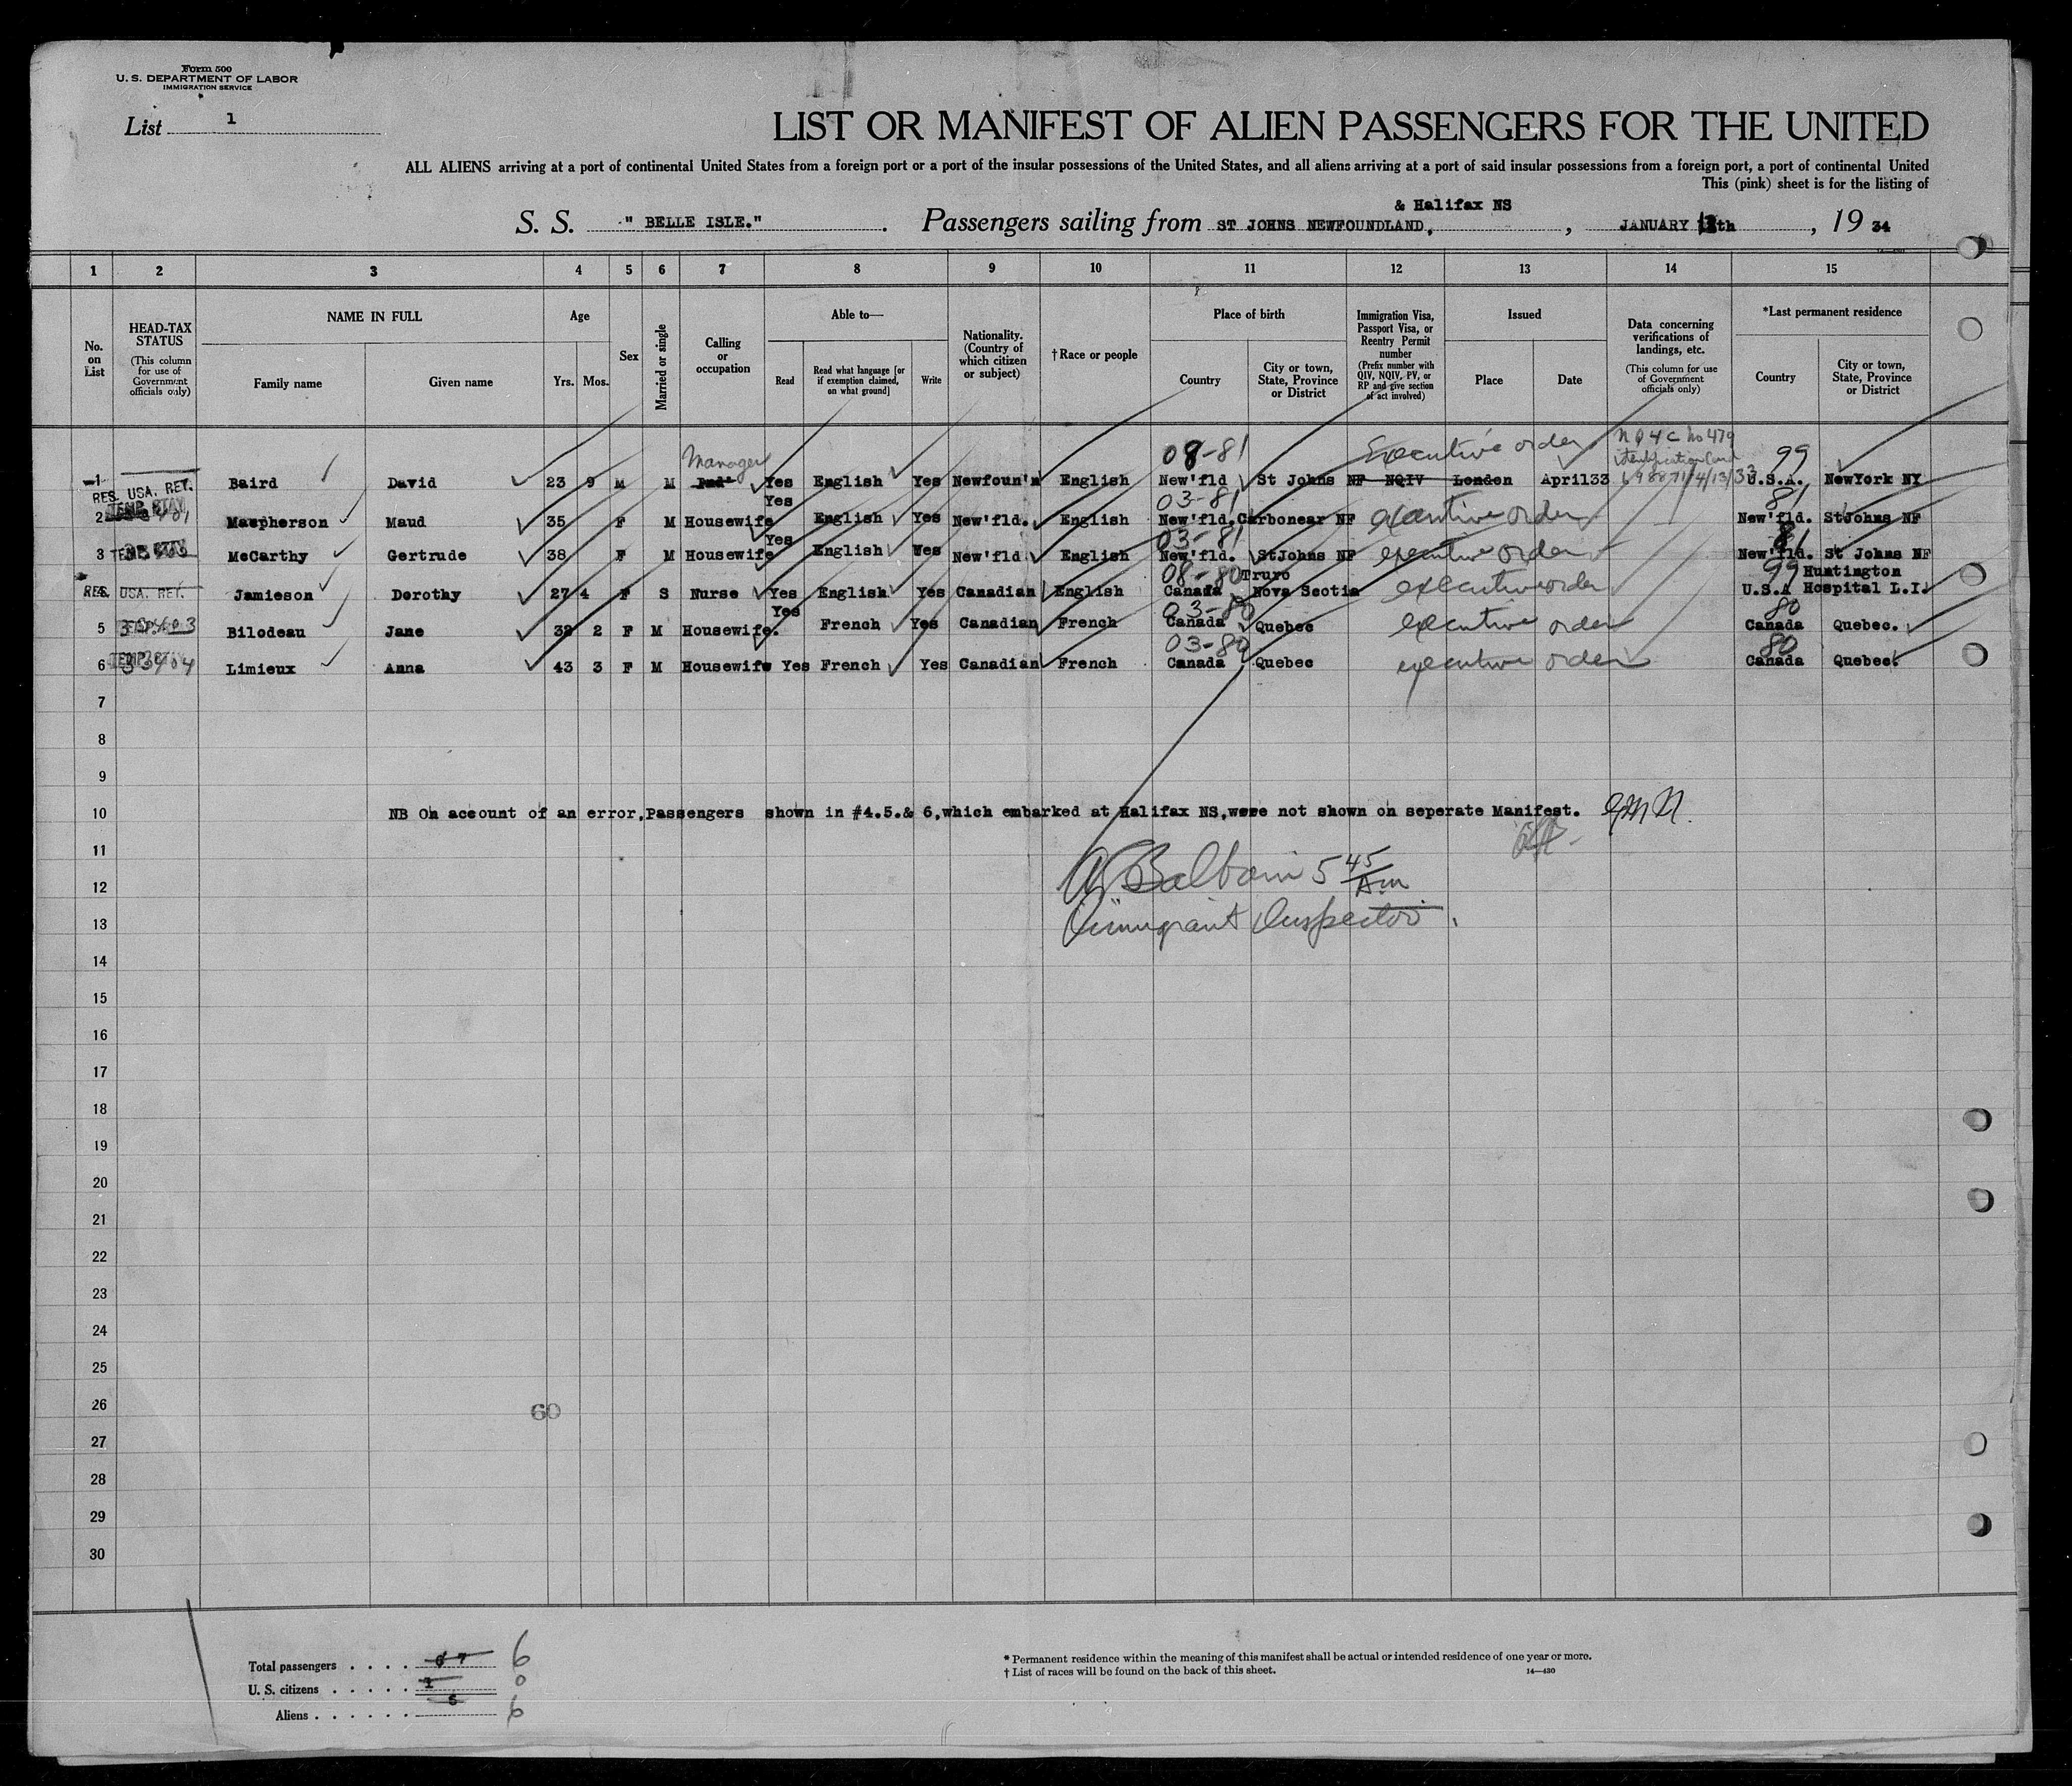 Form 500
U. S. DEPARTMENT OF LABOR
IMMIGRATION SERVICE
List 1
LIST OR MANIFEST OF ALIEN PASSENGERS FOR THE UNITED
ALL ALIENS arriving at a port of continental United States from a foreign port or a port of the insular possessions of the United States, and all aliens arriving at a port of said insular possessions from a foreign port, a port of continental United
This (pink) sheet is for the listing of
& Halifax NS
S. S. " BELLE ISLE." . Passengers sailing from ST JOHNS NEWFOUNDLAND, , JANUARY th , 19 34
1 2 3 4 5 6 7 8 9 10 11 12 13 14 15
No. on List
HEAD-TAX STATUS (This column for use of Government officials only)
NAME IN FULL
Family name
Given name
Age
Yrs. Mos.
Sex
Married or single
Calling or occupation
Able to—
Read
Read what language [or if exemption claimed, on what ground]
Write
Nationality. (Country of which citizen or subject)
†Race or people
Place of birth
Country
City or town, State, Province or District
Immigration Visa, Passport Visa, or Reentry Permit number (Prefix number with QIV, NQIV, PV, or RP and give section of act involved)
Issued
Place
Date
Data concerning verifications of landings, etc. (This column for use of Government officials only)
*Last permanent residence
Country
City or town, State, Province or District
Manager 08-81 Executive order NQ 4 C No 479 99
1 Baird David 23 9 M M Yes English Yes Newfoun'n English New'fld St Johns NF NQIV London April33 identification Card 698871/4/13/33 U.S.A. NewYork NY
RES. USA. RET.
Yes 03-81 81
2 TEMP STAY Macpherson Maud 35 F M Housewife English Yes New'fld. English New'fld. Carbonear NF executive order New'fld. StJohns NF
Yes 03-81 81
3 TEMP STAY McCarthy Gertrude 38 F M Housewife English Yes New'fld English New'fld. StJohns NF executive order New'fld. St Johns NF
08-80 Truro 99 Huntington
RES. USA. RET. Jamieson Dorothy 27 4 F S Nurse Yes English Yes Canadian English Canada Nova Scotia executive order U.S.A Hospital L.I.
Yes 03-80 80
5 Bilodeau Jane 32 2 F M Housewife. French Yes Canadian French Canada Quebec executive order Canada Quebec.
03-80 80
6 TEMP STAY Limieux Anna 43 3 F M Housewife Yes French Yes Canadian French Canada Quebec executive order Canada Quebec.
7
8
9
10 NB On account of an error,Passengers shown in #4.5.& 6,which embarked at Halifax NS,were not shown on seperate Manifest.
11
12 Balboni 5 45/Am
13 Immigrant Inspector.
14
15
16
17
18
19
20
21
22
23
24
25
26 60
27
28
29
30
Total passengers . . . . 6 7 6
U. S. citizens . . . . . 1 0
Aliens . . . . . . 6 6
* Permanent residence within the meaning of this manifest shall be actual or intended residence of one year or more.
† List of races will be found on the back of this sheet. 14—430